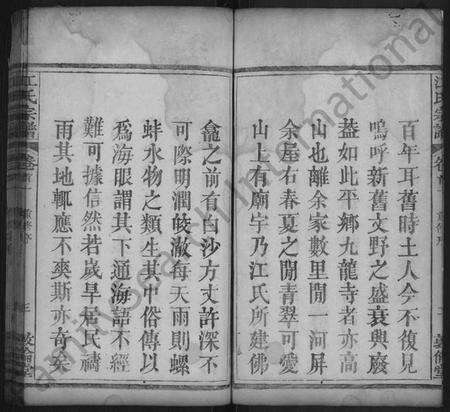 百年耳舊時土人今不復見
嗚呼新舊文野之盛衰興廢
葢如此平鄉九龍寺者亦高
山也離余家數里閒一河屏
余屋右春夏之閒青翠可愛
山上有廟宇乃江氏所建佛
龕之前有白沙方丈許深不
可際明潤皎澈每天雨則螺
蚌水物之類生其中俗傳以
爲海眼謂其下通海語不經
難可據信然若歲旱居民禱
雨其地輒應不爽斯亦奇矣
江氏宗譜
卷首
三
敦倫堂